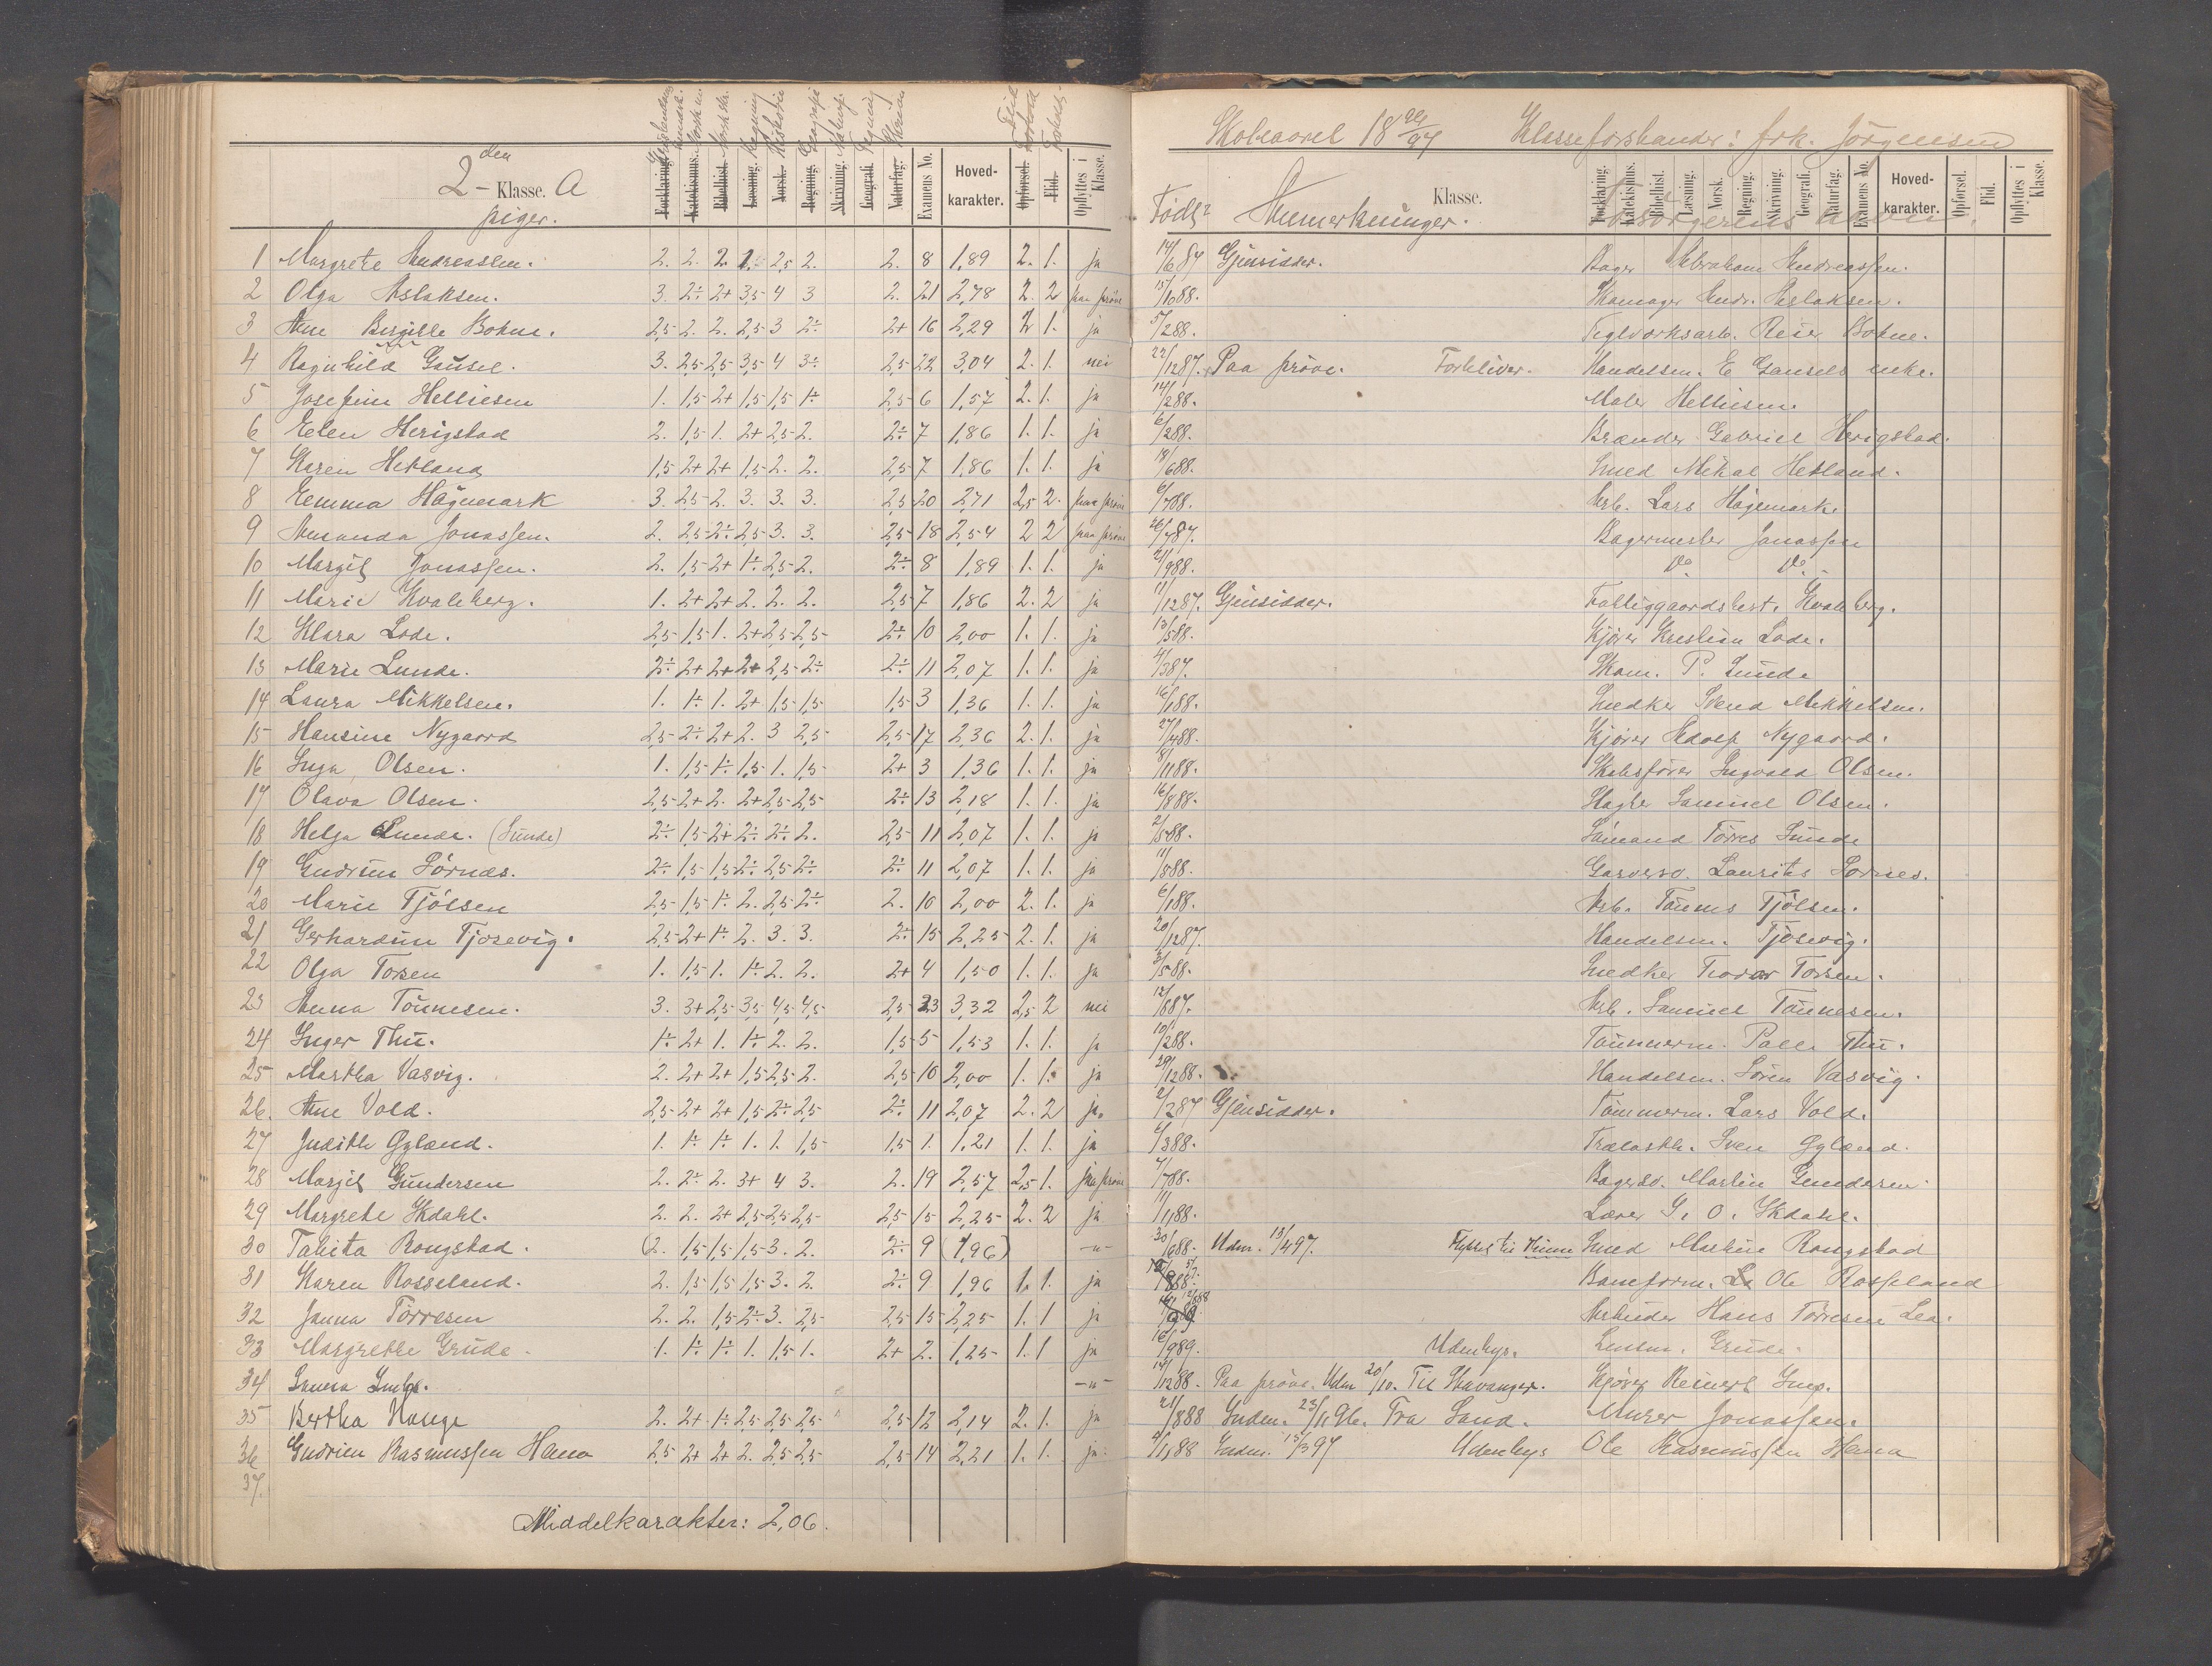 2den Klasse. A
piger.
Examens No. Hoved-karakter. Opflyttes i Klasse.
1 Margrete Andreassen. 2. 2. 2. 2,5 2. 2. 8 1,89 2. 1. ja
2 Olga Aslaksen. 3. 2÷ 2+ 3,5 4 3 2. 21 2,78 2. 2 paa prøve
3 Ane Bergitte Bokne. 2,5 2. 2. 2,5 3 2÷ 2+ 16 2,29 2 1. ja
4 Ragnhild Gausel. 3. 2,5 2,5 3,5 4 3÷ 2,5 22 3,04 2. 1. nei
5 Josefine Helliesen 1. 1,5 2+ 1,5 1,5 1÷ 2,5 6 1,57 2. 1. ja
6 Elen Herigstad 2. 1,5 1. 2+ 2,5 2. 2÷ 7 1,86 1. 1. ja
7 Karen Hetland 1,5 2+ 2+ 1,5 2. 2. 2,5 7 1,86 1. 1. ja
8 Emma Hågemark 3. 2,5 2. 3. 3. 3. 2,5 20 2,71 2,5 2. paa prøve
9 Amanda Jonassen. 2. 2,5 2÷ 2,5 3. 3. 2,5 18 2,54 2 2 paa prøve
10 Margit Jonassen. 2. 1,5 2+ 1÷ 2,5 2. 2÷ 8 1,89 1. 1. ja
11 Marie Kvaleberg. 1. 2+ 2+ 2. 2. 2. 2,5 7 1,86 2. 2 ja
12 Klara Lode. 2,5 1,5 1. 2+ 2,5 2,5 2÷ 10 2,00 1. 1. ja
13 Marie Lunde. 2÷ 2+ 2+ 2+ 2,5 2÷ 2÷ 11 2,07 1. 1. ja
14 Laura Mikkelsen. 1. 1÷ 1. 2+ 1,5 1,5 1,5 3 1,36 1. 1. ja
15 Hansine Nygaard 2,5 2÷ 2+ 2. 3 2,5 2,5 17 2,36 2. 1. ja
16 Inga Olsen. 1. 1,5 1÷ 1,5 1. 1,5 2+ 3 1,36 1. 1. ja
17 Olava Olsen. 2,5 2+ 2. 2+ 2,5 2,5 2÷ 13 2,18 1. 1. ja
18 Helga Sunde. (Sunde) 2÷ 1,5 2+ 2÷ 2÷ 2. 2,5 11 2,07 1. 1. ja
19 Gudrun Sørnæs. 2÷ 1,5 1,5 2÷ 2,5 2÷ 2÷ 11 2,07 1. 1. ja
20 Marie Tjølsen 2,5 1,5 1÷ 2. 2,5 2÷ 2. 10 2,00 2. 1. ja
21 Gerhardine Tjosevig. 2,5 2+ 1÷ 2. 3. 3. 2÷ 15 2,25 2. 1. ja
22 Olga Torsen 1. 1,5 1. 1÷ 2. 2. 2+ 4 1,50 1. 1. ja
23 Anna Tønnesen. 3. 3+ 2,5 3,5 4,5 4,5 2,5 23 3,32 2,5 2 nei
24 Inger Thu. 1÷ 2+ 1. 1÷ 2. 2. 1,5 5 1,53 1. 1. ja
25 Martha Vasvig. 2. 2+ 2+ 1,5 2,5 2. 2,5 10 2,00 1. 1. ja
26. Ane Vold. 2,5 2+ 2+ 1,5 2÷ 2,5 2÷ 11 2,07 2. 2 ja.
27 Judith Gyland. 1. 1÷ 1÷ 1. 1. 1,5 1,5 1. 1,21 1. 1. ja
28 Margit Gundersen 2. 2÷ 2. 3+ 4 3. 2. 19 2,57 2,5 1. paa prøve
29 Margrethe Skdahl. 2. 2. 2+ 2,5 2,5 2,5 2,5 15 2,25 2. 2 ja
30 Tabita Rongstad. (2. 1,5 1,5 1,5 3. 2. 2÷ 9 (1,96) -"-
31 Karen Rosseland. 2. 1,5 1,5 1,5 3. 2. 2÷ 9 1,96 1. 1. ja
32 Janna Tørresen 2. 2. 1,5 2÷ 3. 2,5 2,5 15 2,25 1. 1 ja
33 Margrethe Grude. 1. 1÷ 1÷ 1. 1,5 1. 2+ 2. 1,25 1. 1 ja
34 -"-
35 Bertha Hauge 2. 2+ 1÷ 2,5 2,5 2,5 2,5 12 2,14 2. 1. ja
36 Gudrun Rasmussen Hana 2,5 2+ 2+ 2. 2,5 2,5 2,5 14 2,21 1. 1. ja.
37.
Middelkarakter: 2,06.
Skoleaaret 1896/97 Klasseforstander: frk. Jørgensen
Født Anmerkninger. Klasse. Forsørgerens navn. Hoved-karakter. Opførsel. Flid. Opflyttes i Klasse.
14/6 87 Gjensidder. Bager Abraham Andreassen.
15/10 88. Skomager Andr. Aslaksen.
5/2 88. Teglverksarb. Reier Bokne.
22/12 87. Paa prøve. Forbliver. Handelsm. E Gausels enke.
14/2 88. Maler Helliesen.
6/2 88. Brænder Gabriel Herigstad.
18/6 88. Smed Mikal Hetland.
6/7 88. Arb. Lars Hågemark.
26/7 87. Bagermester Jonassen
2/9 88. Do Do
11/12 87. Gjensidder. Fattiggaardsbest. Kvaleberg.
13/5 88. Kjører Kristian Lode.
4/3 87. Skom. P. Lunde
16/1 88. Snedker Svend Mikkelsen.
27/4 88. Kjører Adolf Nygaard.
8/11 88. Skibsfører Ingvald Olsen.
16/8 88. Slagter Samuel Olsen.
2/5 88. Sømand Tørres Sunde
11/8 88. Garversv. Laurits Sørnes.
6/1 88. Arb. Tønnes Tjølsen.
20/12 87. Handelsm. Tjosevig.
3/5 88. Snedker Teodor Torsen.
12/8 87. Arb. Samuel Tønnesen.
10/2 88. Tømmerm. Paul Thu.
29/12 88. Handelsm. Søren Vasvig.
2/2 87 Gjensidder. Tømmerm. Lars Vold.
6/3 88. Trælasth. Sven Gyland.
4/7 88. Bagersv. Martin Gundersen
11/1 88. Lærer G. O. Skdahl.
30/6 88. Udm. 13/4 97. Flyttet til Smed Martin Rongstad
Baneform. Ole Rosseland
Arbeider Hans Tørresen Lea.
16/9 89. Udenbys. Lensm. Grude.
14/12 88. Paa prøve. Udm 20/10. Til Stavanger. Kjører Reinert
21/8 88 Indm. 23/11 96. Fra Sand. Murer Jonassen.
2/11 88 Indm. 15/3 97 Udenbys Ole Rasmussen Hana